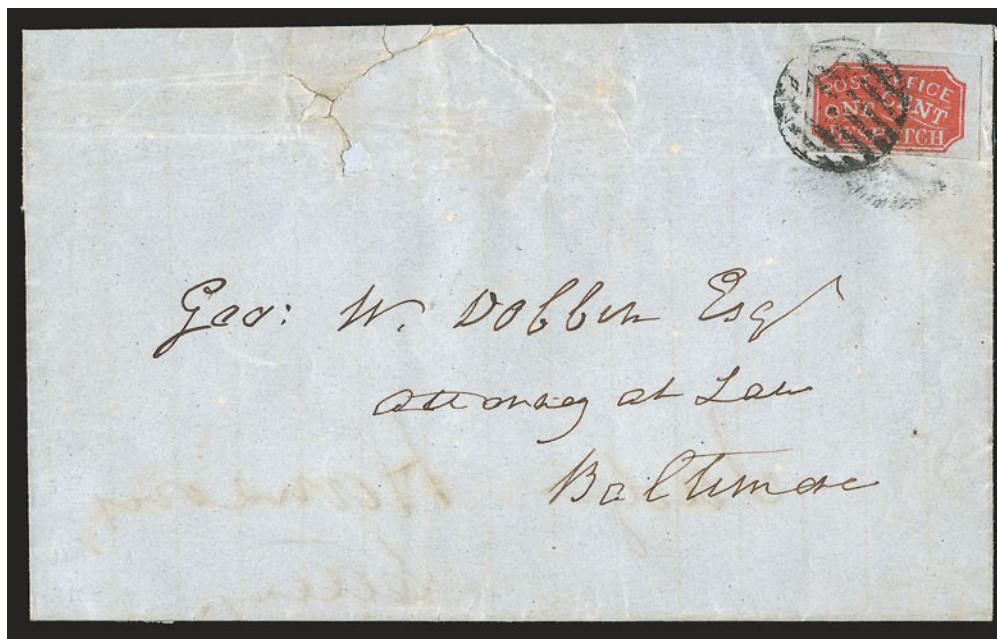 POST OFFICE
ONE CENT
DESPATCH
Geo: W. Dobbin Esqr
Attorney at Law
Baltimore